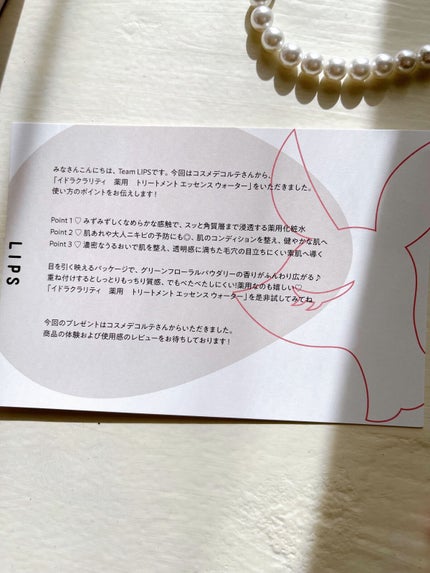 みなさんこんにちは、Team LIPSです。今回はコスメデコルテさんから、
「イドラクラリティ　薬用　トリートメント エッセンス ウォーター」をいただきました。
使い方のポイントをお伝えします!
Point 1 ♡ みずみずしくなめらかな感触で、スッと角質層まで浸透する薬用化粧水
Point 2 ♡ 肌あれや大人ニキビの予防にも◎、肌のコンディションを整え、健やかな肌へ
Point 3 ♡ 濃密なうるおいで肌を整え、透明感に満ちた毛穴の目立ちにくい素肌へ導く
目を引く映えるパッケージで、グリーンフローラルパウダリーの香りがふんわり広がる♪
重ね付けするとしっとりもっちり質感、でもべたべたしにくい!薬用なのも嬉しい♡
「イドラクラリティ　薬用　トリートメント エッセンス ウォーター」を是非試してみてね
今回のプレゼントはコスメデコルテさんからいただきました。
商品の体験および使用感のレビューをお待ちしております!
LIPS